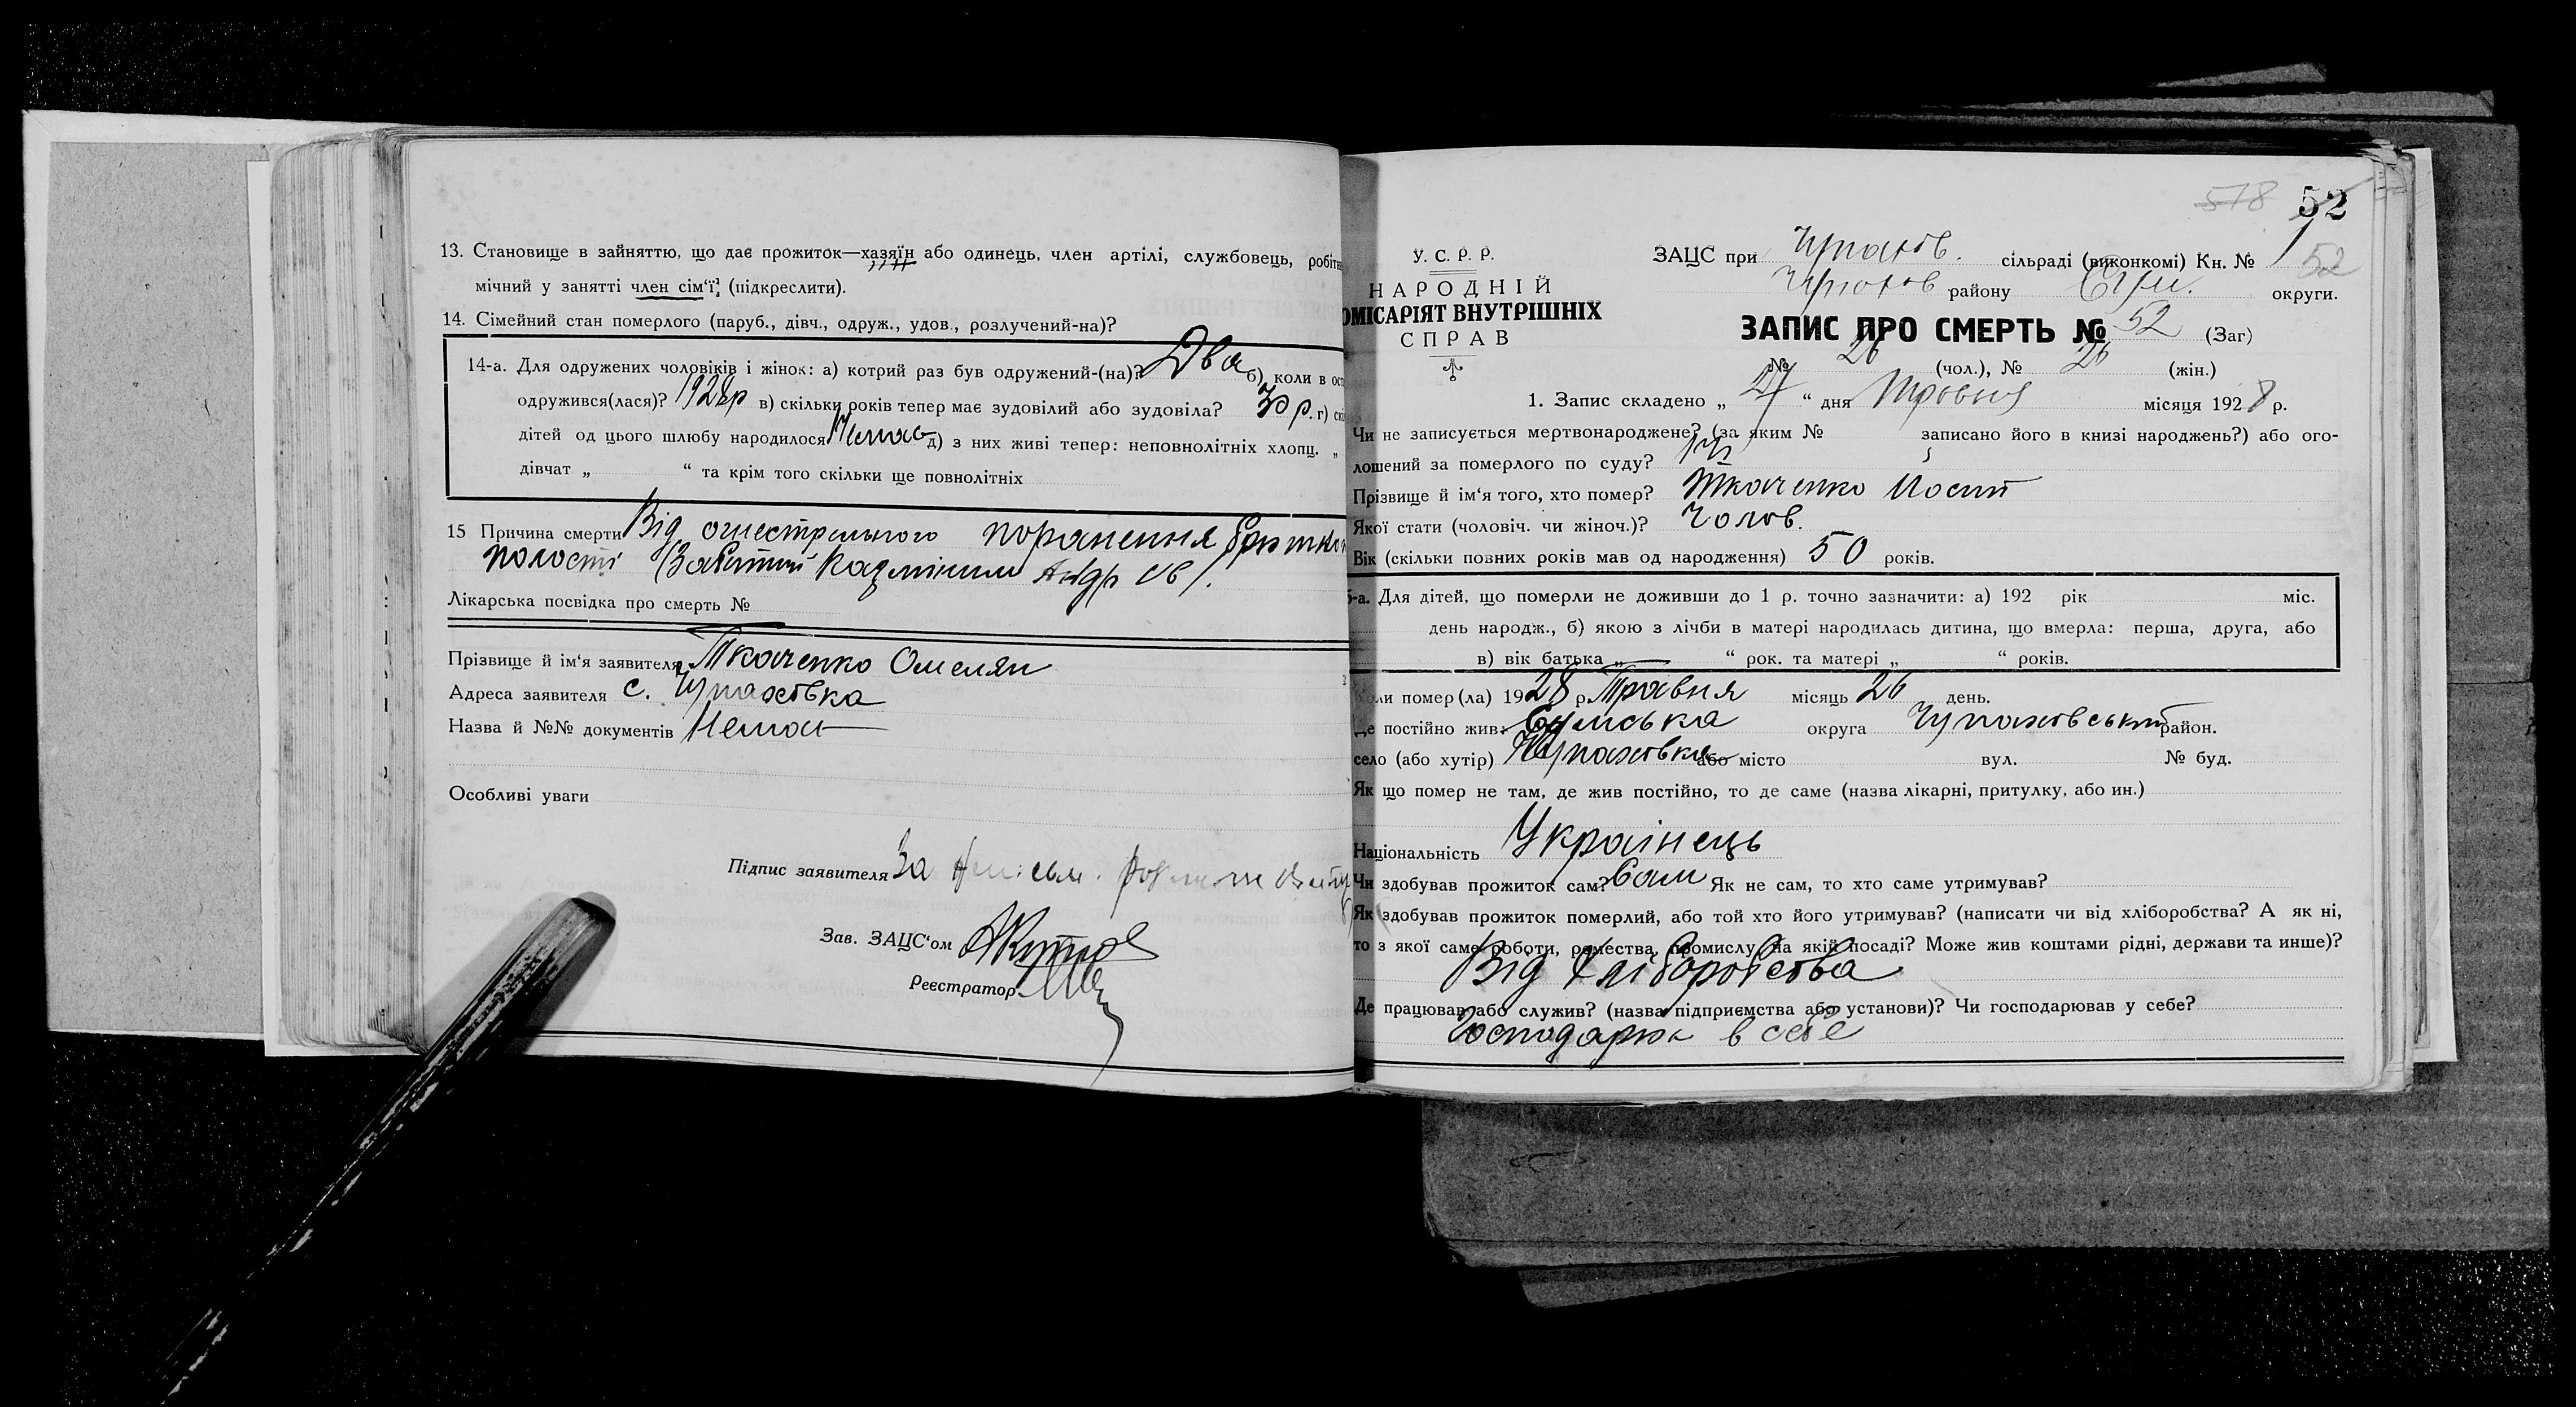 13. Становище в зайняттю, що дає прожиток—хазяїн або одинець, член артілі, службовець, робітн
мічний у занятті член сім'ї, (підкреслити).
14. Сімейний стан померлого (паруб., дівч., одруж., удов., розлучений-на)?
14-а. Для одружених чоловіків і жінок: а) котрий раз був одружений-(на)? Два б) коли в ост
одружився(лася)? 1928р в) скільки років тепер має зудовілий або зудовіла? 30 р. г) скі
дітей од цього шлюбу народилося Немає д) з них живі тепер: неповнолітніх хлопц. „
дівчат „ “ та крім того скільки ще повнолітніх
15 Причина смерти Від огнестрельного поранення
полості (Забитий Андр
Лікарська посвідка про смерть №
Прізвище й ім'я заявителя Ткаченко Омелян
Адреса заявителя с. Чупаховка
Назва й №№ документів Немає
Особливі уваги
Підпис заявителя За
Зав. ЗАЦС'ом
Реєстратор
578 52
У. С. Р. Р.
НАРОДНІЙ
ОМІСАРІЯТ ВНУТРІШНІХ
СПРАВ
ЗАЦС при Чупахов. сільраді (виконкомі) Кн. № 52
Чупахов району Сум. округи.
ЗАПИС ПРО СМЕРТЬ № 52 (Заг)
№ 26 (чол.), № 26 (жін.)
1. Запис складено „ 27 “ дня Травня місяця 1928 р.
Чи не записується мертвонароджене? (за яким № записано його в книзі народжень?) або ого-
лошений за померлого по суду? Ні
Прізвище й ім'я того, хто помер? Ткаченко Йосип
Якої стати (чоловіч. чи жіноч.)? Чолов.
Вік (скільки повних років мав од народження) 50 років.
5-а. Для дітей, що померли не доживши до 1 р. точно зазначити: а) 192 рік міс.
день народж., б) якою з лічби в матері народилась дитина, що вмерла: перша, друга, або
в) вік батька „ “ рок. та матері „ “ років.
Коли помер (ла) 1928 р Травня місяць 26 день.
Де постійно жив: Сумська округа Чупаховський район.
село (або хутір) Чупаховка або місто вул. № буд.
Як що помер не там, де жив постійно, то де саме (назва лікарні, притулку, або ин.)
Національність Українець
Чи здобував прожиток сам? Сам Як не сам, то хто саме утримував?
Як здобував прожиток померлий, або той хто його утримував? (написати чи від хліборобства? А як ні,
то з якої саме роботи, ремества, промислу, на якій посаді? Може жив коштами рідні, держави та инше)?
Від Хліборобства
Де працював або служив? (назва підприємства або установи)? Чи господарював у себе?
Господарює в себе